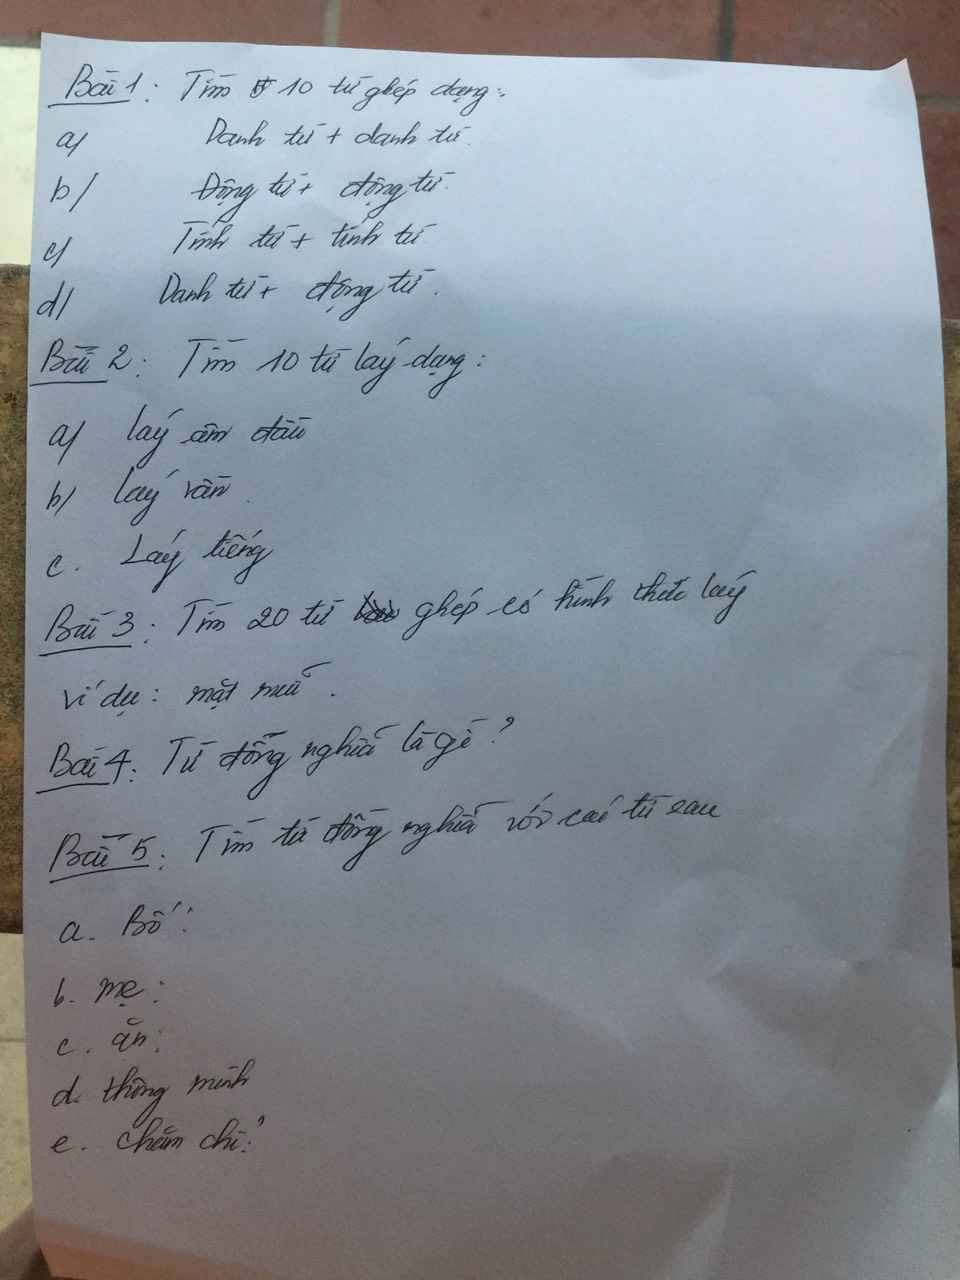 Bài 1: Tìm 10 từ ghép dạng:
a/ Danh từ + danh từ.
b/ Động từ + động từ.
c/ Tính từ + tính từ
d/ Danh từ + động từ.
Bài 2: Tìm 10 từ láy dạng:
a/ láy âm đầu
b/ láy vần.
c. Láy tiếng
Bài 3: Tìm 20 từ ghép có hình thức láy
ví dụ: mặt mũi.
Bài 4: Từ đồng nghĩa là gì?
Bài 5: Tìm từ đồng nghĩa với các từ sau
a. Bố:
b. mẹ:
c. ăn:
d. thông minh
e. chăm chỉ: